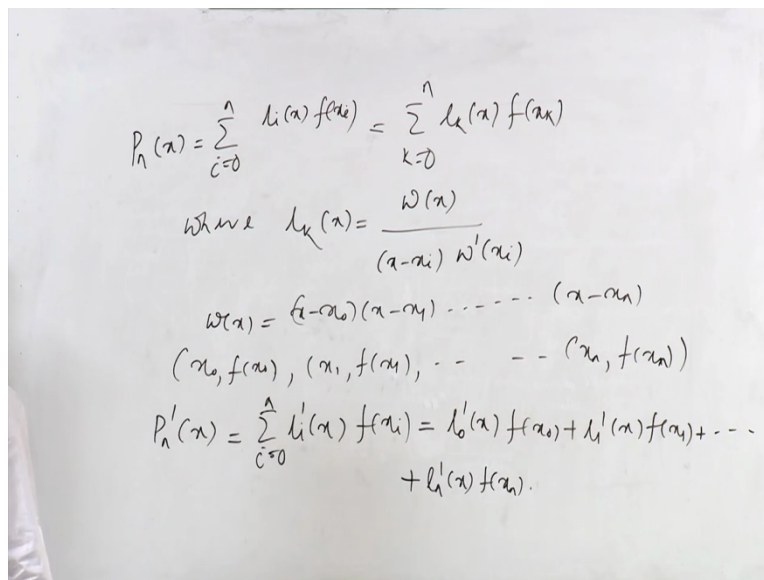 Pₙ(x) = ∑ᵢ₌₀ⁿ lᵢ(x) f(xᵢ) = ∑ₖ₌₀ⁿ lₖ(x) f(xₖ)
where lₖ(x) = W(x) / (x-xᵢ) W'(xᵢ)
W(x) = (x-x₀)(x-x₁) ....... (x-xₙ)
(x₀, f(x₀), (x₁, f(x₁), .. -- (xₙ, f(xₙ))
Pₙ'(x) = ∑ᵢ₌₀ⁿ lᵢ'(x) f(xᵢ) = l₀'(x) f(x₀) + l₁'(x) f(x₁) + ---
+ lₙ'(x) f(xₙ).